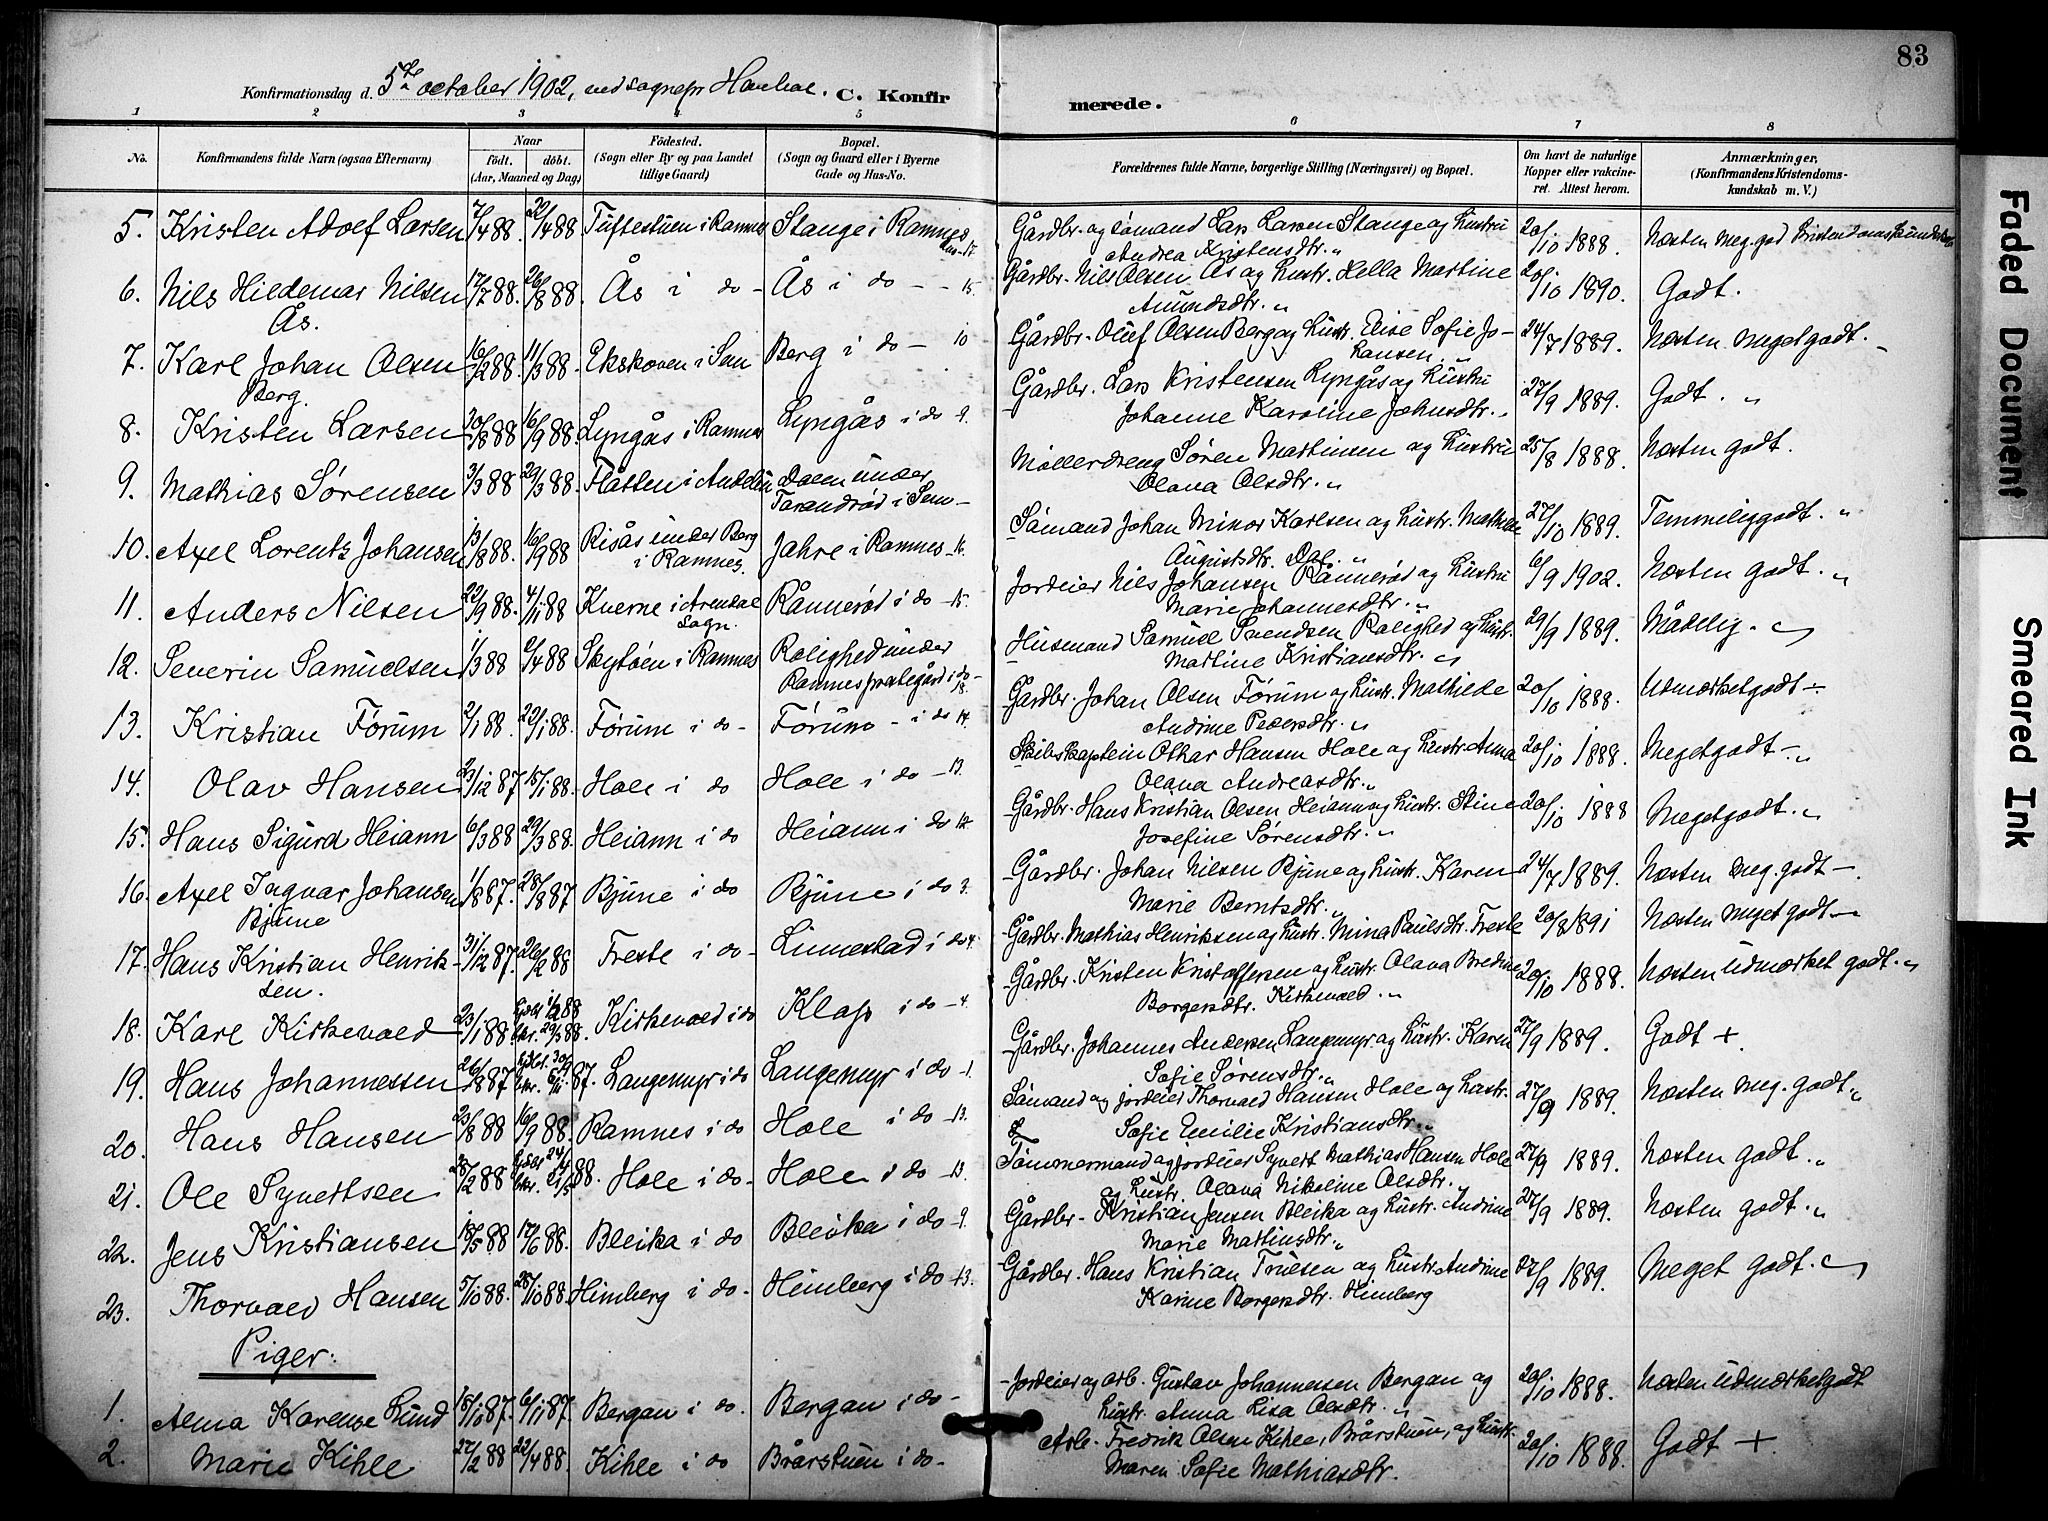 83
Konfirmationsdag d. 5te october 1902, ved sognepr C. Konfirmerede.
1 2 3 4 5 6 7 8
No. Konfirmandens fulde Navn (ogsaa Efternavn) Naar født. døbt. (Aar, Maaned og Dag) Födested. (Sogn eller By og paa Landet tillige Gaard) Bopæl. (Sogn og Gaard eller i Byerne Gade og Hus-No. Forældrenes fulde Navne, borgerlige Stilling (Næringsvei) og Bopæl. Om havt de naturlige Kopper eller vakcineret. Attest herom. Anmærkninger, (Konfirmandens Kristendomskundskab m. V.)
5. Kristen Adolf Larsen 7/4 88. 22/4 88. Tuftestuen i Ramnes Stange i Ramnes Gårdbr. og sømand Lars Larsen Stange og hustru Andrea Kristensdtr. 20/10 1888. Næsten meg. god Kristendomskundskab
6. Nils Hildemar Nilsen Ås. 17/7 88. 26/8 88. Ås i do - Ås i do - - 15. Gårdbr. Nils Olsen Ås og hustr. Hella Martine Amundsdtr. 20/10 1890. Godt.
7. Karl Johan Olsen Berg. 16/2 88. 11/3 88. Ekskoven i Sem Berg i do - 10 Gårdbr. Oluf Olsen Berg og hustr. Elise Sofie Johansen. 24/7 1889. Næsten meget godt.
8. Kristen Larsen 20/8 88 16/9 88. Lyngås i Ramnes Lyngås i do - 9. Gårdbr. Lars Kristensen Lyngås og hustru Johanne Karoline Johnsdtr. 27/9 1889. Godt. "
9. Mathias Sørensen 3/3 88 29/3 88. Flåtten i Andebu Dalen under Tarandrød i Sem - Møllerdreng Søren Martinsen og hustru Olava Olsdtr. " 25/8 1888. Næsten godt.
10. Axel Lorents Johansen 13/8 88. 16/9 88 Risås under Berg i Ramnes. Jahre i Ramnes - 16. Sømand Johan Minor Karlsen og hustr. Mathilde Augustsdtr. 27/10 1889. Temmelig godt. "
11. Anders Nilsen 22/9 88. 4/11 88 Kverne i Arendal Sogn. Rånnerød i do - 15. Jordeier Nils Johansen Rånnerød og hustru Marie Johannesdtr. " 6/9 1902. Næsten godt. "
12. Severin Samuelsen 1/3 88 2/4 88 Skytøen i Ramnes Rolighed under Ramnes prestegård i do - 18. Husmand Samuel Svendsen Rolighed og hustr. Martine Kristiansdtr. " 29/9 1889. Mådelig. "
13. Kristian Førum 2/1 88. 22/1 88. Førum i do - Førum - i do 14. Gårdbr. Johan Olsen Førum og hustr. Mathilde Andrine Pedersdtr. " 20/10 1888. Udmærket godt -
14. Olav Hansen 23/12 87 15/1 88. Hole i do Hole i do - 13. Skibskaptein Othar Hansen Hole og hustr. Anna Olava Andreasdtr. " 20/10 1888. Meget godt - "
15. Hans Sigurd Heiann 6/3 88 29/3 88. Heiann i do Heiann i do 12. Gårdbr. Hans Kristian Olsen Heiann og hustr. Stine Josefine Sørensdtr. " 20/10 1888 Meget godt. "
16. Axel Ingvar Johansen Bjune 1/8 87. 28/8 87 Bjune i do Bjune i do 3. Gårdbr. Johan Nilsen Bjune og hustr. Karen Marie Berntsdtr. " 24/7 1889. Næsten meg. godt -.
17. Hans Kristian Henriksen. 31/12 87. 26/2 88 Freste i do - Linnestad i do 4. Gårdbr. Mathias Henriksen og hustr. Mina Paulsdtr. Freste 20/8 1891 Næsten meget godt -
18. Karl Kirkevold 23/1 88. hjdbt 1/2 88 bkr. 29/3 88. Kirkevold i do Klop i do - 4. Gårdbr. Kristen Kristoffersen og hustr. Olava Bredine Borgersdtr. Kirkevold. " 20/10 1888. Næsten udmærket godt. "
19. Hans Johannessen 26/8 87 87. Langemyr i do Langemyr i do - 1. Gårdbr. Johannes Andersen Langemyr og hustr. Karen Sofie Sørensdtr. " 27/9 1889. Godt +
20. Hans Hansen 23/8 88 16/9 88. Ramnes i do Hole i do - 13. Sømand og jordeier Thorvald Hansen Hole og hustr. Sofie Emilie Kristiansdtr. " 27/9 1889. Næsten meg. godt "
21. Ole Syvertsen 28/2 88 88. Hole i do - Hole i do - 13. Tømmermand og jordeier Syvert Mathias Hansen Hole og hustr. Olava Nikoline Olsdtr. " 27/9 1889. Næsten godt. "
22. Jens Kristiansen 18/5 88 17/6 88. Bleika i do Bleika i do - 9. Gårdbr. Kristian Jensen Bleika og hustr. Andrine Marie Martinsdtr. " 27/9 1889. Næsten godt. "
23. Thorvald Hansen 5/10 88. 28/10 88. Himberg i do - Himberg i do - 13. Gårdbr. Hans Kristian Truelsen og hustr. Andrine Karine Borgersdtr. Himberg 27/9 1889. Meget godt.
Piger:
1. Alma Karense Lund 15/10 87. 6/11 87. Bergan i do. Bergan i do - Jordeier og arb. Gustav Johannessen Bergan og hustr. Anna Lisa Olsdtr. " 20/10 1888. Næsten udmærket godt
2. Marie Kihle 27/2 88 22/4 88. Kihle i do Brårstuen i do - Arb. Fredrik Olsen Kihle, Brårstuen, og hustr. Maren Sofie Mathiasdtr. 20/10 1888. Godt +
Faded Document
Smeared Ink